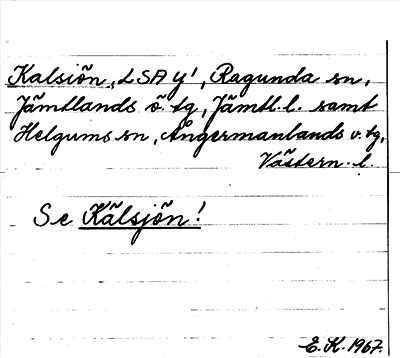 Kalsiön, LSA y!, Ragunda sn,
Jämtlands ö. tg, Jämtl. l. samt
Helgums sn, Ångermanlands v. tg,
Västern. l.
Se Kälsjön!
E. K. 1967.